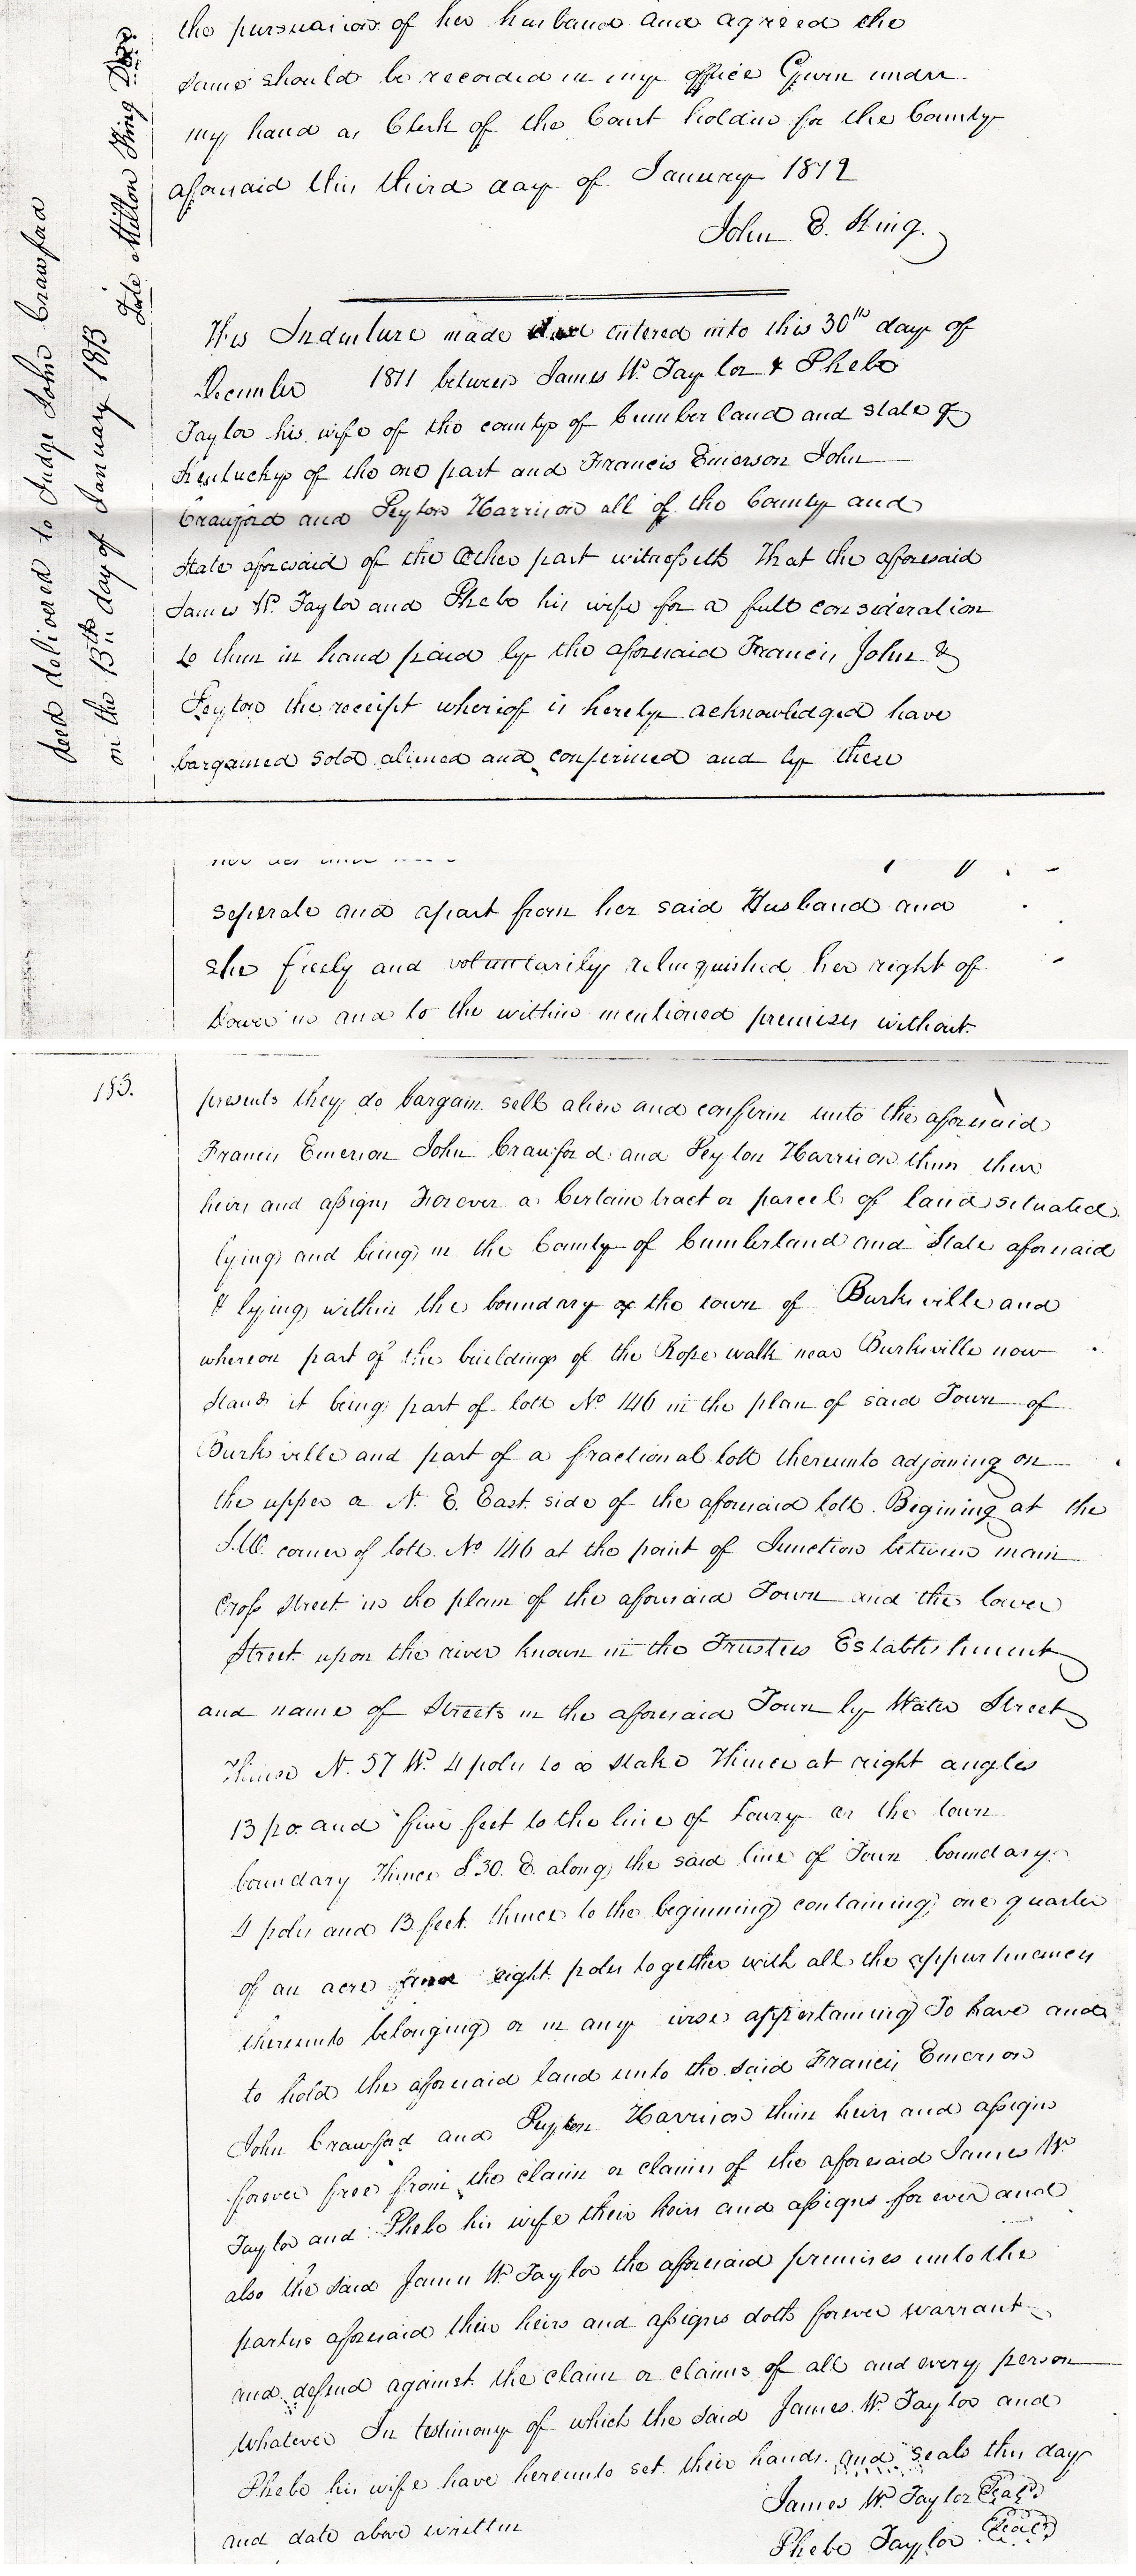 the pursuaision of her husband and agreed the
same should be recorded in my office Given under
my hand as Clerk of the Court holden for the County
aforesaid this third day of January 1812
John E. King.
Deed delivered to Judge John Crawford
on the 13th day of January 1813
Teste Milton King
This Indenture made and entered into this 30th day of
December 1811 between James W. Taylor & Phebe
Taylor his wife of the county of Cumberland and state of
Kentucky of the one part and Francis Emerson John
Crawford and Peyton Harrison all of the County and
State aforesaid of the Other part witnesseth That the aforesaid
James W. Taylor and Phebe his wife for a full consideration
to them in hand paid by the aforesaid Francis, John &
Peyton the receipt whereof is hereby acknowledged have
bargained sold aliened and confirmed and by these
seperate and apart from her said Husband and
she freely and voluntarily relinquished her right of
Dower in and to the within mentioned premises without
193.
presents they do bargain sell alien and confirm unto the aforesaid
Francis Emerson John Crawford and Peyton Harrison them their
heirs and assigns Forever a Certain tract or parcel of land situated
lying and being in the County of Cumberland and State aforesaid
& lying within the boundary of the town of Burksville and
whereon part of the buildings of the Rope walk near Burksville now
Stands it being part of lott No 146 in the plan of said Town of
Burksville and part of a fractional lott thereunto adjoining on
the upper or N. E. East side of the aforesaid lott. Begining at the
S.W. corner of lott No 146 at the point of Junction between main
Cross Street in the plan of the aforesaid Town and the lower
Street upon the river known in the Trustees Establishment
and name of Streets in the aforesaid Town by Water Street
Thence N. 57 W. 4 poles to a stake Thence at right angles
13 po. and five feet to the line of Loury or the town
boundary Thence S 30. E. along the said line of Town boundary
4 poles and 13 feet thence to the beginning containing one quarter
of an acre and eight poles together with all the appurtinances
thereunto belonging or in any wise appertaining To have and
to hold the aforesaid land unto the said Francis Emerson
John Crawford and Peyton Harrison their heirs and assigns
forever free from the claim or claims of the aforesaid James W.
Taylor and Phebe his wife their heirs and assigns for ever and
also the said James W. Taylor the aforesaid premises unto the
parties aforesaid their heirs and assigns doth forever warrant
and defend against the claim or claims of all and every person
Whatever In testimony of which the said James. W. Taylor and
Phebe his wife have hereunto set their hands and seals this day
and date above written
James W. Taylor Seal
Phebe Taylor Seal